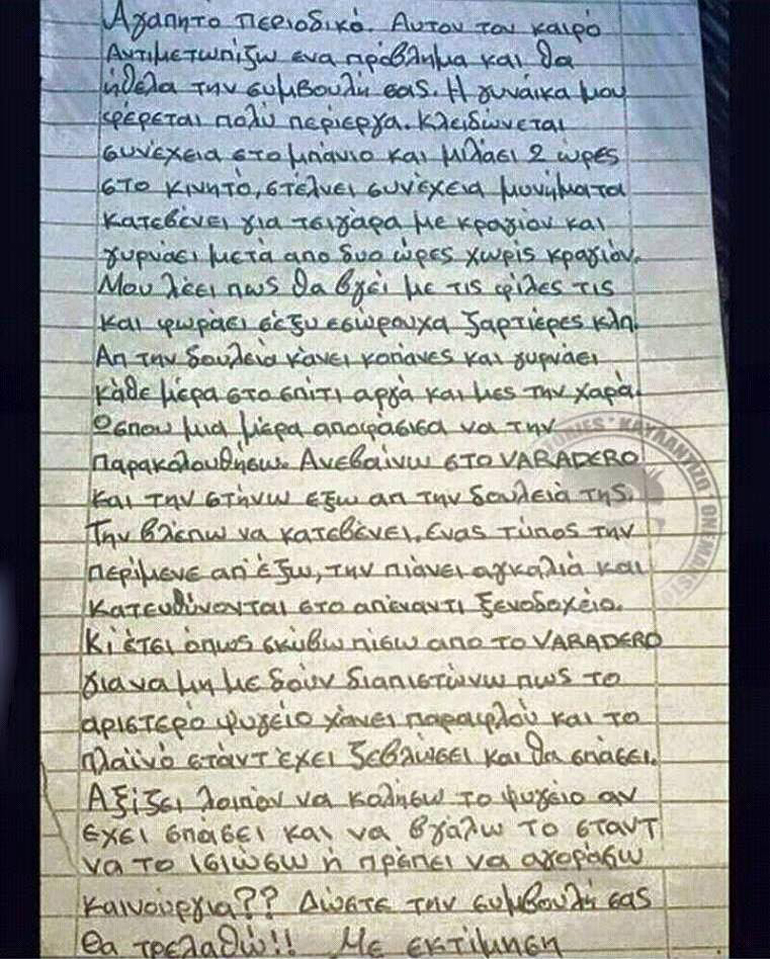 Αγαπητο περιοδικό. Αυτον τον καιρό
Αντιμετωπίζω ενα πρόβλημα και θα
ήθελα την συμβουλή σας. Η γυνάικα μου
φέρεται πολύ περιεργα. Κλειδώνεται
συνέχεια στο μπάνιο και μιλάει 2 ώρες
στο κινητό, στέλνει συνέχεια μυνήματα
κατεβένει για τσιγάρα με κραγιον και
γυρνάει μετά απο δυο ώρες χωρίς κραγιόν.
Μου λέει πως θα βγεί με τις φίλες τις
και φωράει σέξυ εσώρουχα ζαρτιέρες κλπ.
Απ την δουλειά κάνει κοπάνες και γυρνάει
κάθε μέρα στο σπίτι αργά και μες την χαρά.
Ωσπου μια μέρα αποφάσισα να την
παρακολουθήσω. Ανεβαίνω στο VARADERO
και την στήνω έξω απ την δουλειά της.
Την βλέπω να κατεβένει. Ενας τύπος την
περίμενε απ' έξω, την πιάνει αγκαλιά και
κατευθύνονται στο απέναντι ξενοδοχείο.
Κι έτσι όπως σκύβω πίσω απο το VARADERO
για να μη με δούν διαπιστώνω πως το
αριστερό ψυγείο χάνει παραφλού και το
πλαϊνό στάντ έχει ξεβιώσει και θα σπάσει.
Αξίζει λοιπόν να κολήσω το ψυγείο αν
έχει σπασει και να βγάλω το σταντ
να το ισιώσω ή πρέπει να αγοράσω
καινούργια?? Δώστε την συμβουλή σας
θα τρελαθώ!! Με εκτίμηση